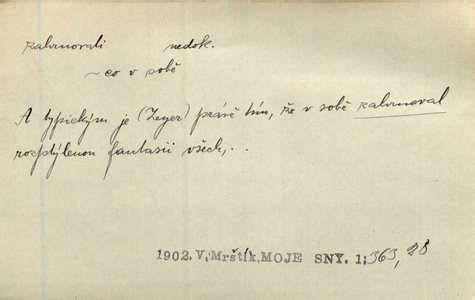 zahrnovati nedok.
~ co v sobě
A typickým je (Zeyer) právě tím, že v sobě zahrnoval
rozptýlenou fantasii všech, . .
1902. V. Mrštík, MOJE SNY. 1; 363, 28